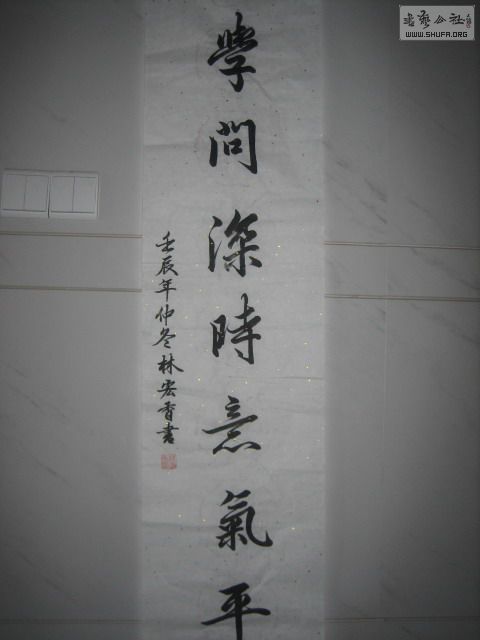 學問深時意氣平
壬辰年仲冬林宏香書
書藝公社
WWW.SHUFA.ORG